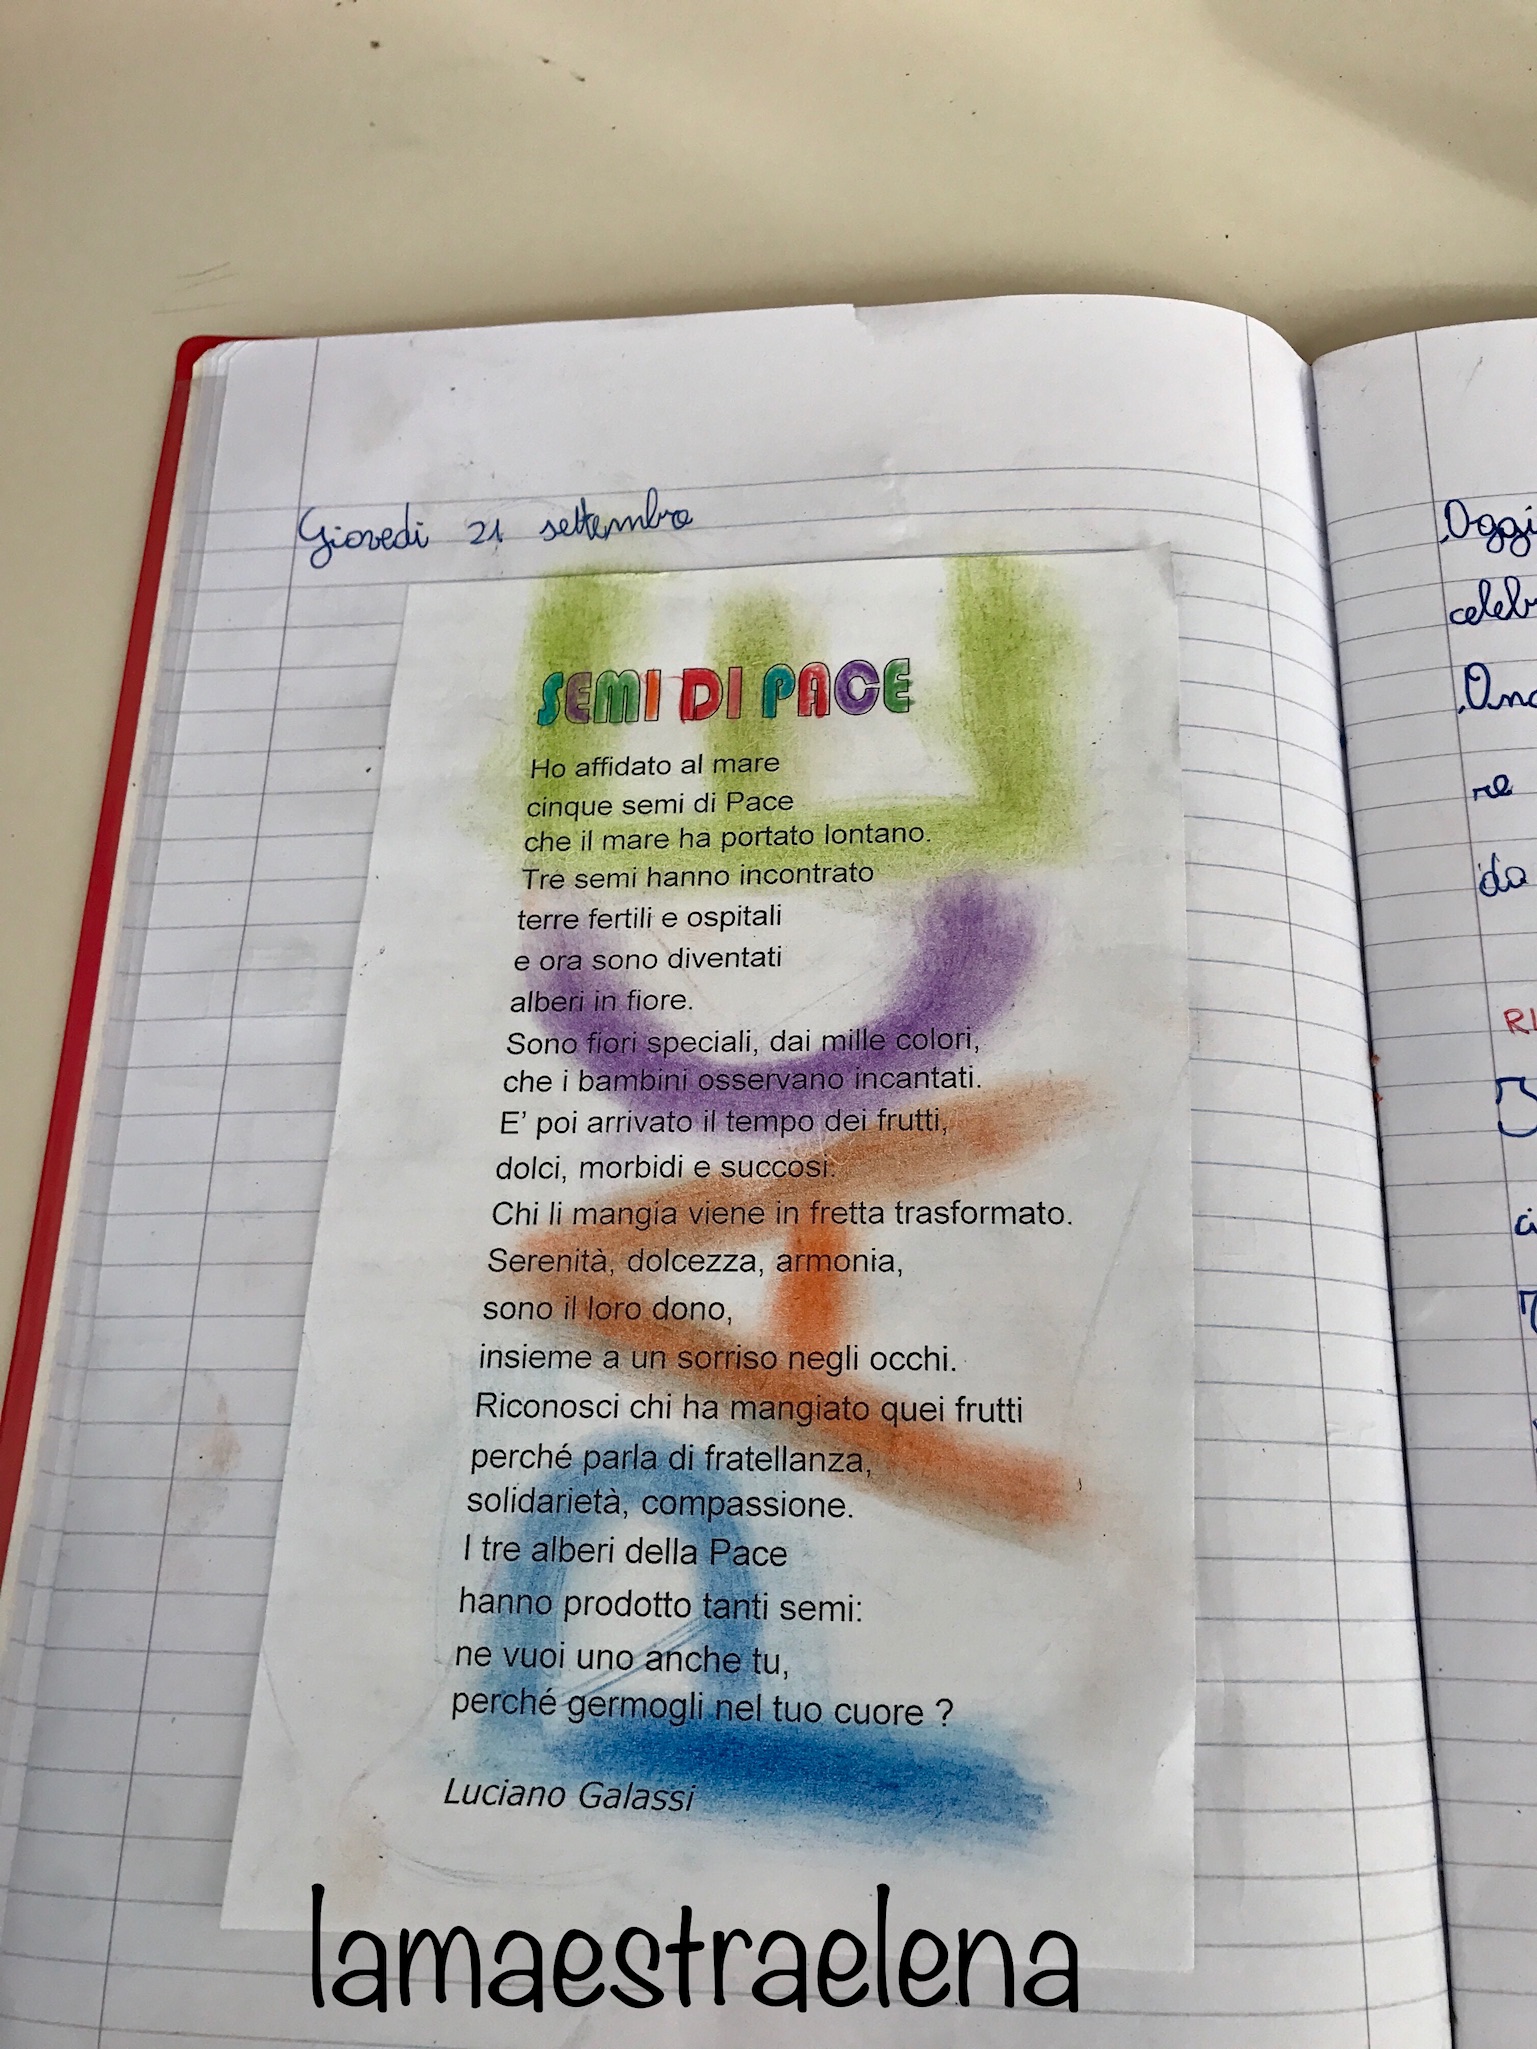 Giovedì 21 settembre
SEMI DI PACE
Ho affidato al mare
cinque semi di Pace
che il mare ha portato lontano.
Tre semi hanno incontrato
terre fertili e ospitali
e ora sono diventati
alberi in fiore.
Sono fiori speciali, dai mille colori,
che i bambini osservano incantati.
E' poi arrivato il tempo dei frutti,
dolci, morbidi e succosi.
Chi li mangia viene in fretta trasformato.
Serenità, dolcezza, armonia,
sono il loro dono,
insieme a un sorriso negli occhi.
Riconosci chi ha mangiato quei frutti
perché parla di fratellanza,
solidarietà, compassione.
I tre alberi della Pace
hanno prodotto tanti semi:
ne vuoi uno anche tu,
perché germogli nel tuo cuore ?
Luciano Galassi
PACE
lamaestraelena
Oggi
re
da